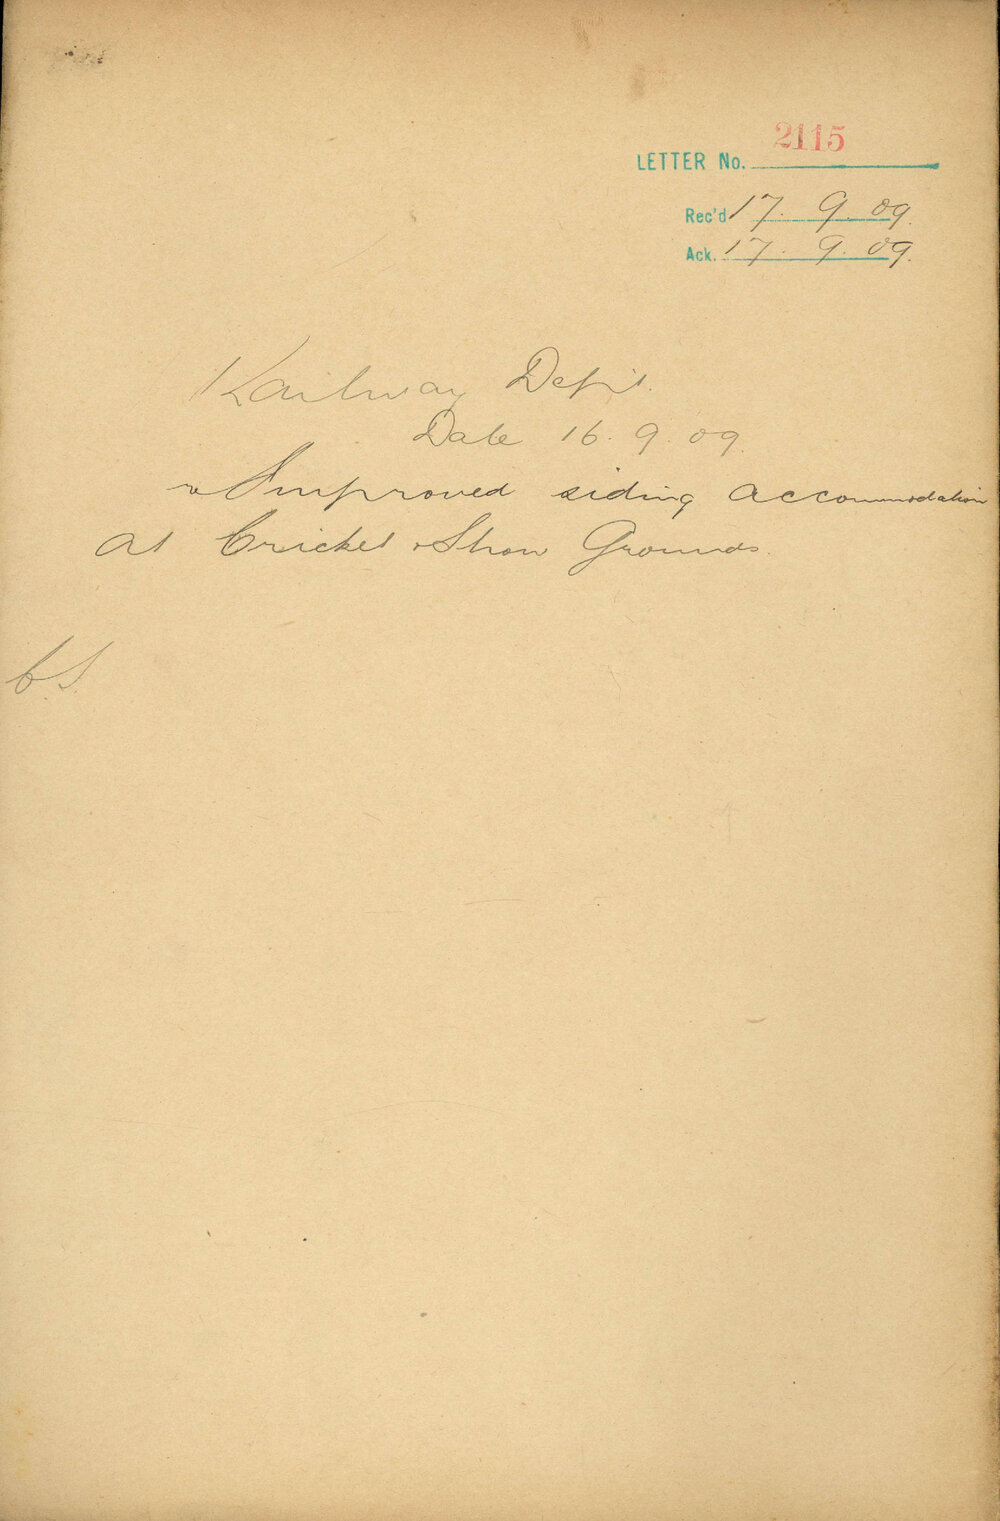 2115
LETTER No.
Rec'd 17. 9. 09.
Ack. 17. 9. 09.
Railway Dept.
Date 16. 9. 09.
re Improved siding accommodation
at Cricket & Show Grounds.
C.S.